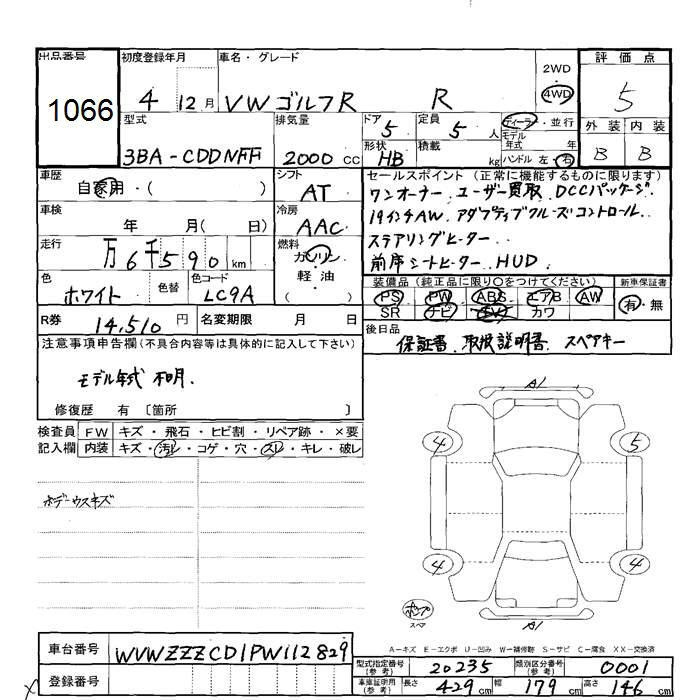 出品番号
1066
初度登録年月
4 12月
車名・グレード
VW ゴルフR R
2WD
4WD
評価点
5
型式
3BA-CDDNFF
排気量
2000 cc
ドア
5
定員
5 人
形状
HB
積載
kg
ディーラ・並行
モデル年式 年
ハンドル 左・右
外装 内装
B B
車歴
自家用・( )
シフト
AT
車検
年 月( 日)
冷房
AAC
走行
万6千590km
燃料
ガソリン
軽油
色
ホワイト
色替
色コード
LC9A
R券
14,510円
名変期限 月 日
セールスポイント(正常に機能するものに限ります)
ワンオーナー、ユーザー買取、DCCパッケージ
19インチAW、アダプティブクルーズコントロール
ステアリングヒーター
前席シートヒーター、HUD
装備品(純正品に限り○をつけてください)
新車保証書
PS PW ABS エアB AW
SR ナビ TV カワ
有・無
後日品
保証書、取扱説明書、スペアキー
注意事項申告欄(不具合内容等は具体的に記入して下さい)
モデル年式 不明.
修復歴 有 〔箇所 〕
検査員記入欄
FW キズ・飛石・ヒビ割・リペア跡・×要
内装 キズ・汚レ・コゲ・穴・スレ・キレ・破レ
ボデーウスキズ
A1
4 5
4 4
A1
スペア
A-キズ E-エクボ U-凹み W-補修跡 S-サビ C-腐食 XX-交換済
車台番号
WVWZZZCD1PW112829
登録番号
型式指定番号(参考)
20235
類別区分番号(参考)
0001
車庫証明用(参考)
長さ 429cm 幅 179cm 高さ 146cm